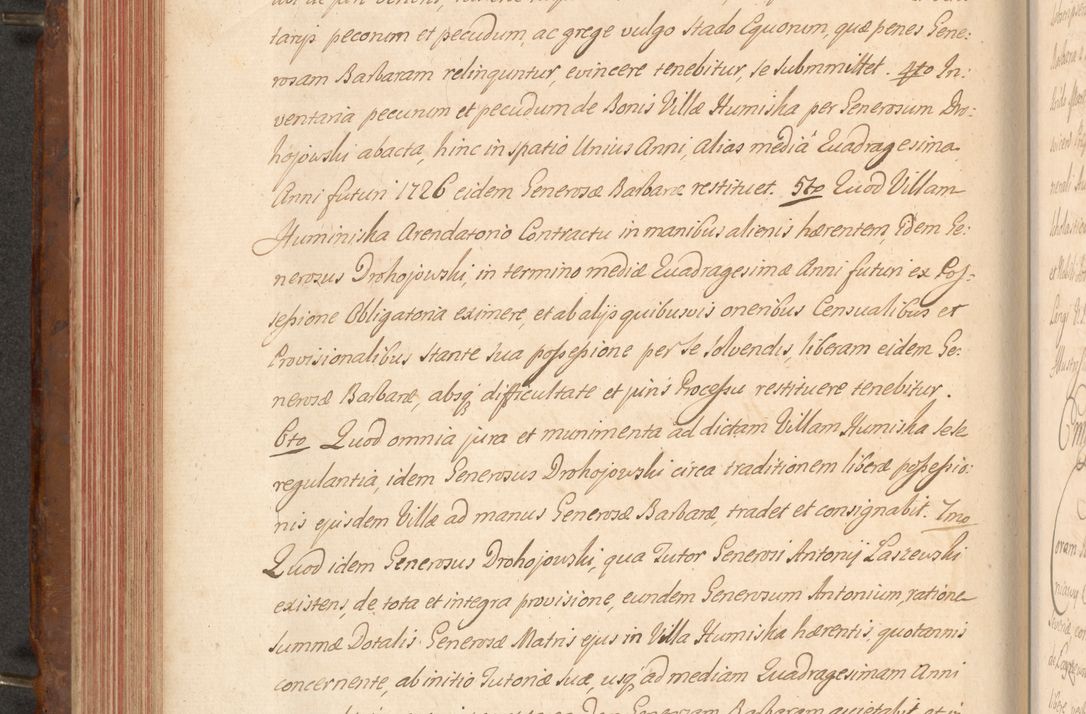 tarijs pecorum et pecudum, ac grege vulgo stado Equorum, quæ penes Gene:
rosam Barbaram relinquntur, evincere tenebitur, se submmittet. 4to In:
ventaria pecurum et pecudum de Bonis Villæ Humiska per Generosum Dro:
hojowski abacta, hinc in spatio Unius Anni, alias mediâ Quadragesima
Anni futuri 1726 eidem Generosæ Barbaræ restituet. 5to Quod Villam
Huminiska Arendatorio Contractu in manibus alienis hærentem, Idem Ge:
nerosus Drohojowski, in termino mediæ Quadragesimæ Anni futuri ex Pos:
sessione Obligatoria eximere, et ab alijs quibusvis oneribus Censualibus et
Provisionalibus stante sua possessione per se solvendis, liberam eidem Ge:
nerosæ Barbaræ, absq difficultate et juris Processu restituere tenebitur.
6to Quod omnia jura et munimenta ad dictam Villam Humiska sese
regulantia, idem Generosus Drohojowski circa traditionem liberæ possessio:
nis ejusdem Villæ ad manus Generosæ Barbaræ, tradet et consignabit. 7mo
Quod idem Generosus Drohojowski, qua Tutor Generosi Antonij Laszewski
existens, de tota et integra provisione, eundem Generosum Antonium, ratione
summæ Dotalis Generosæ Matris ejus in Villa Humiska hærentis, quotannis
concernente, ab initio Tutoriæ suæ, usq ad mediam Quadragesimam Anni